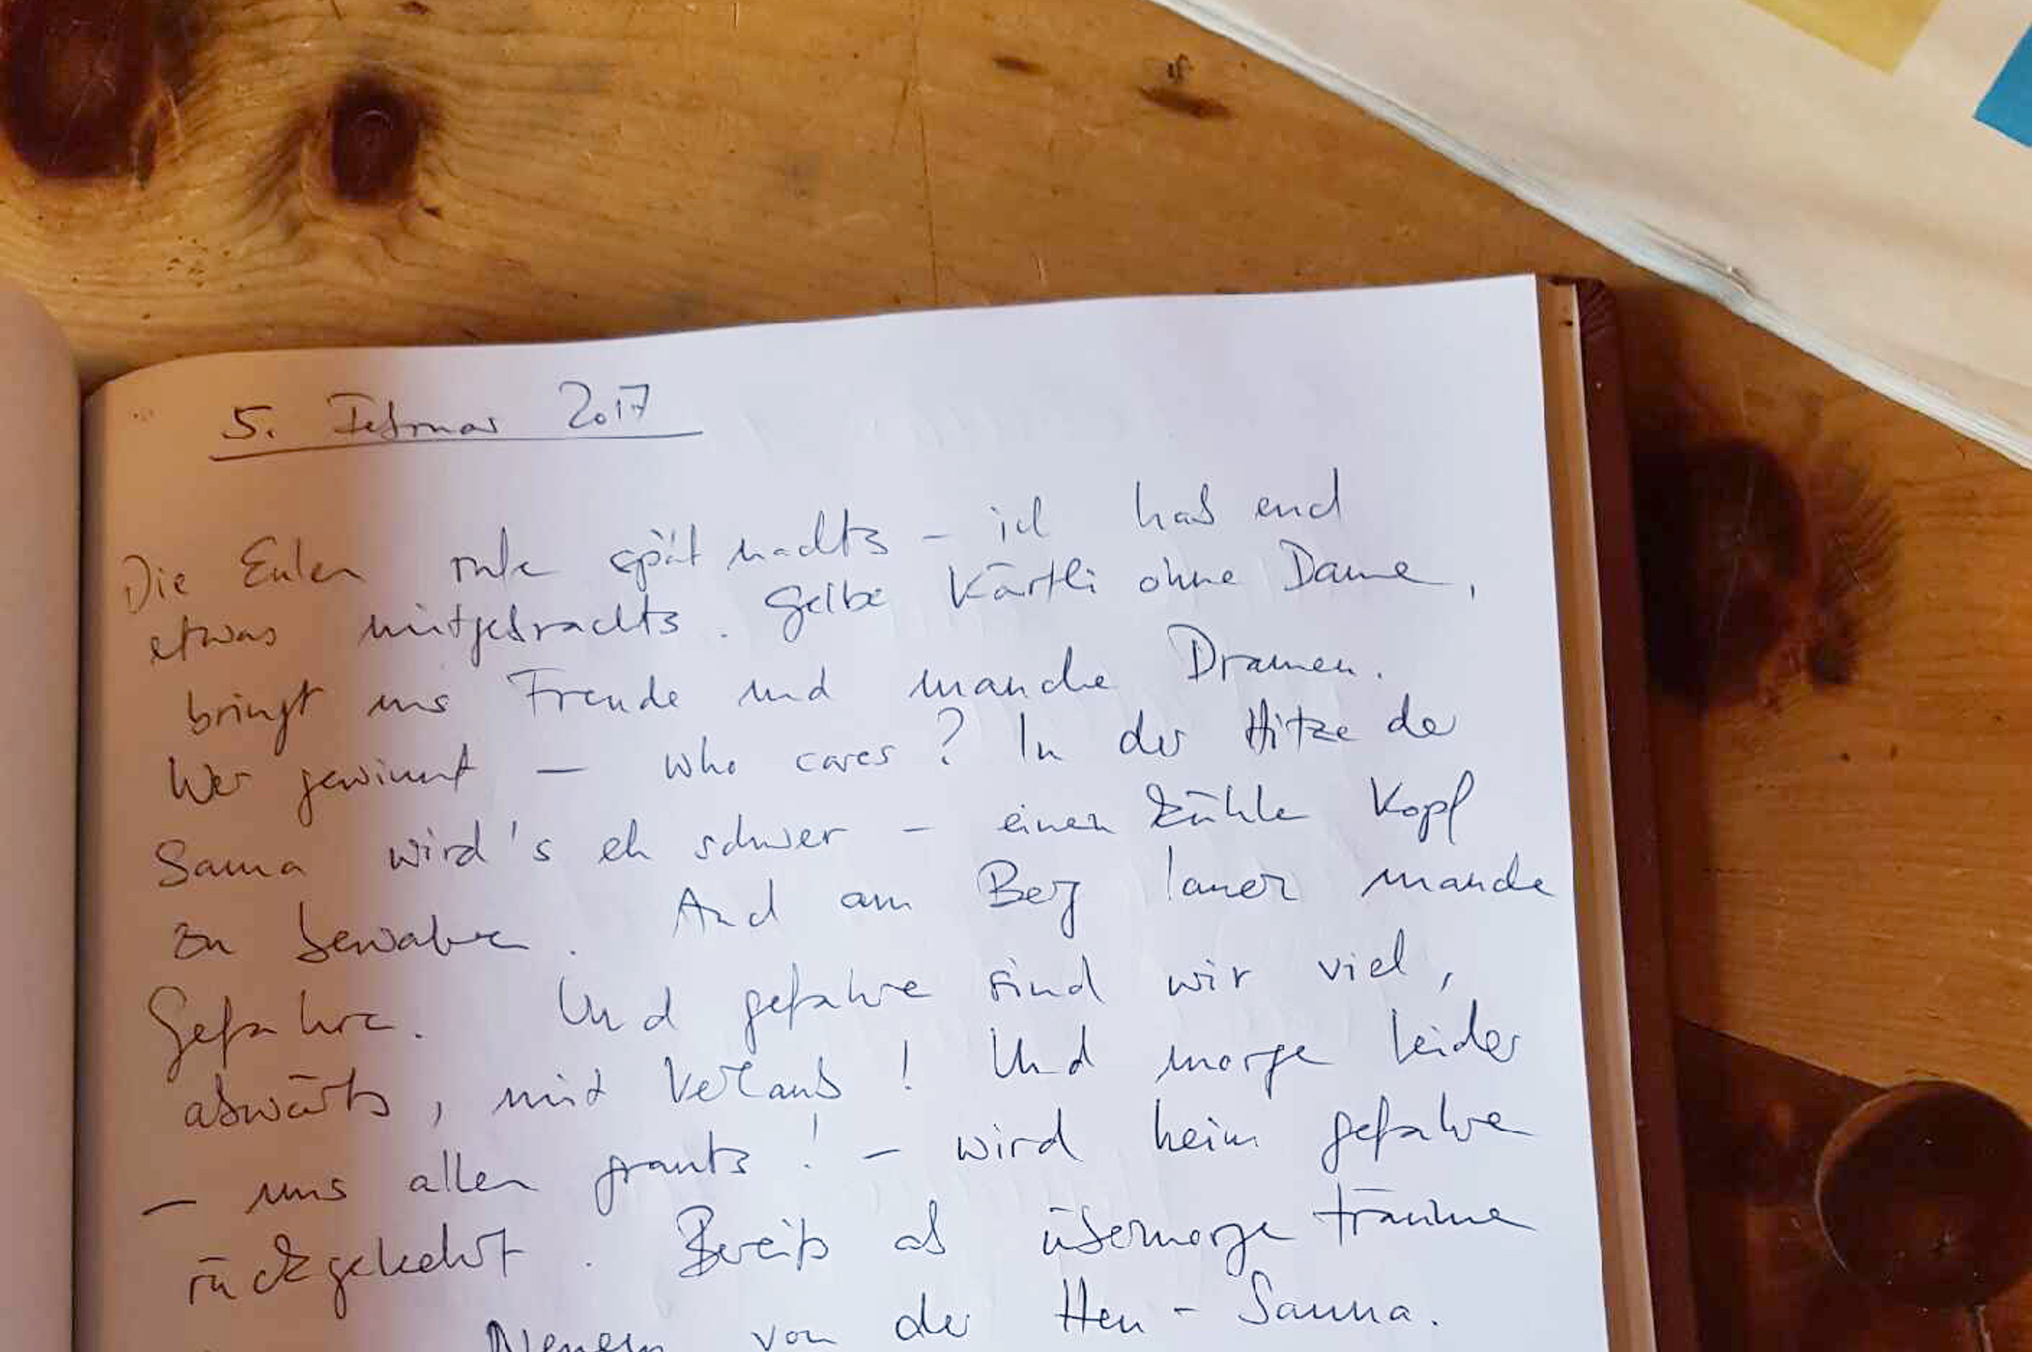 5. Februar 2017
Die Eulen rufe spät nachts – ich hab euch
etwas mitgebrachts. Gelbe Kärtli ohne Dame,
bringt uns Freude und manche Dramen.
Wer gewinnt – who cares? In der Hitze der
Sauna wird's eh schwer – einen kühle Kopf
zu bewahre. Und am Berg lauer manche
Gefahre. Und gefahre sind wir viel,
abwärts, mit Verlaub! Und morge leider
– uns allen grauts! – wird heim gefahre
rückgekehrt. Bereits ab übermorge träume
von der Heu-Sauna.